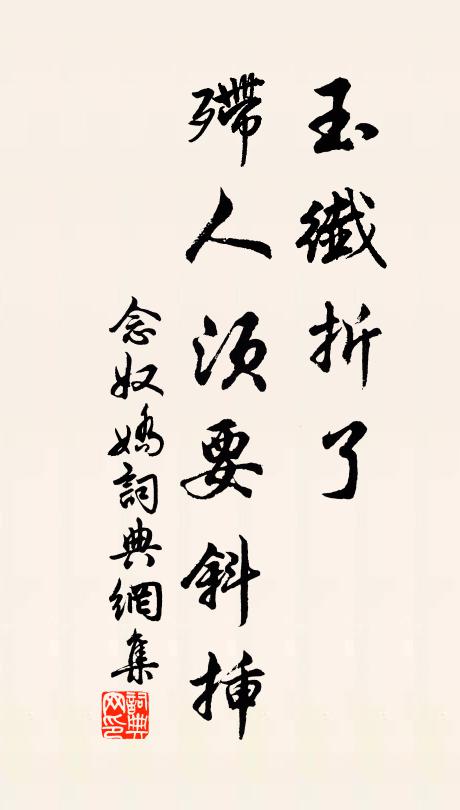 玉纖折了
殢人須要斜插
念奴嬌詞典網集
詞典網印